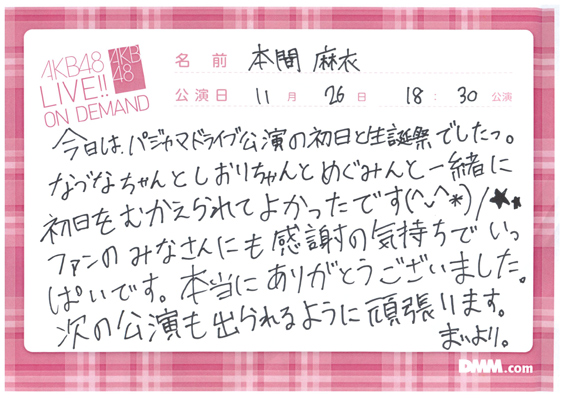 AKB48
LIVE!!
ON DEMAND
AKB
48
名 前 本間 麻衣
公演日 11 月 26 日 18 : 30 公演
今日は、パジャマドライブ公演の初日と生誕祭でしたっ。
なづなちゃんとしおりちゃんとめぐみんと一緒に
初日をむかえられてよかったです(^⌣^*)/★★
ファンのみなさんにも感謝の気持ちでいっ
ぱいです。本当にありがとうございました。
次の公演も出られるように頑張ります。
まいより。
DMM.com